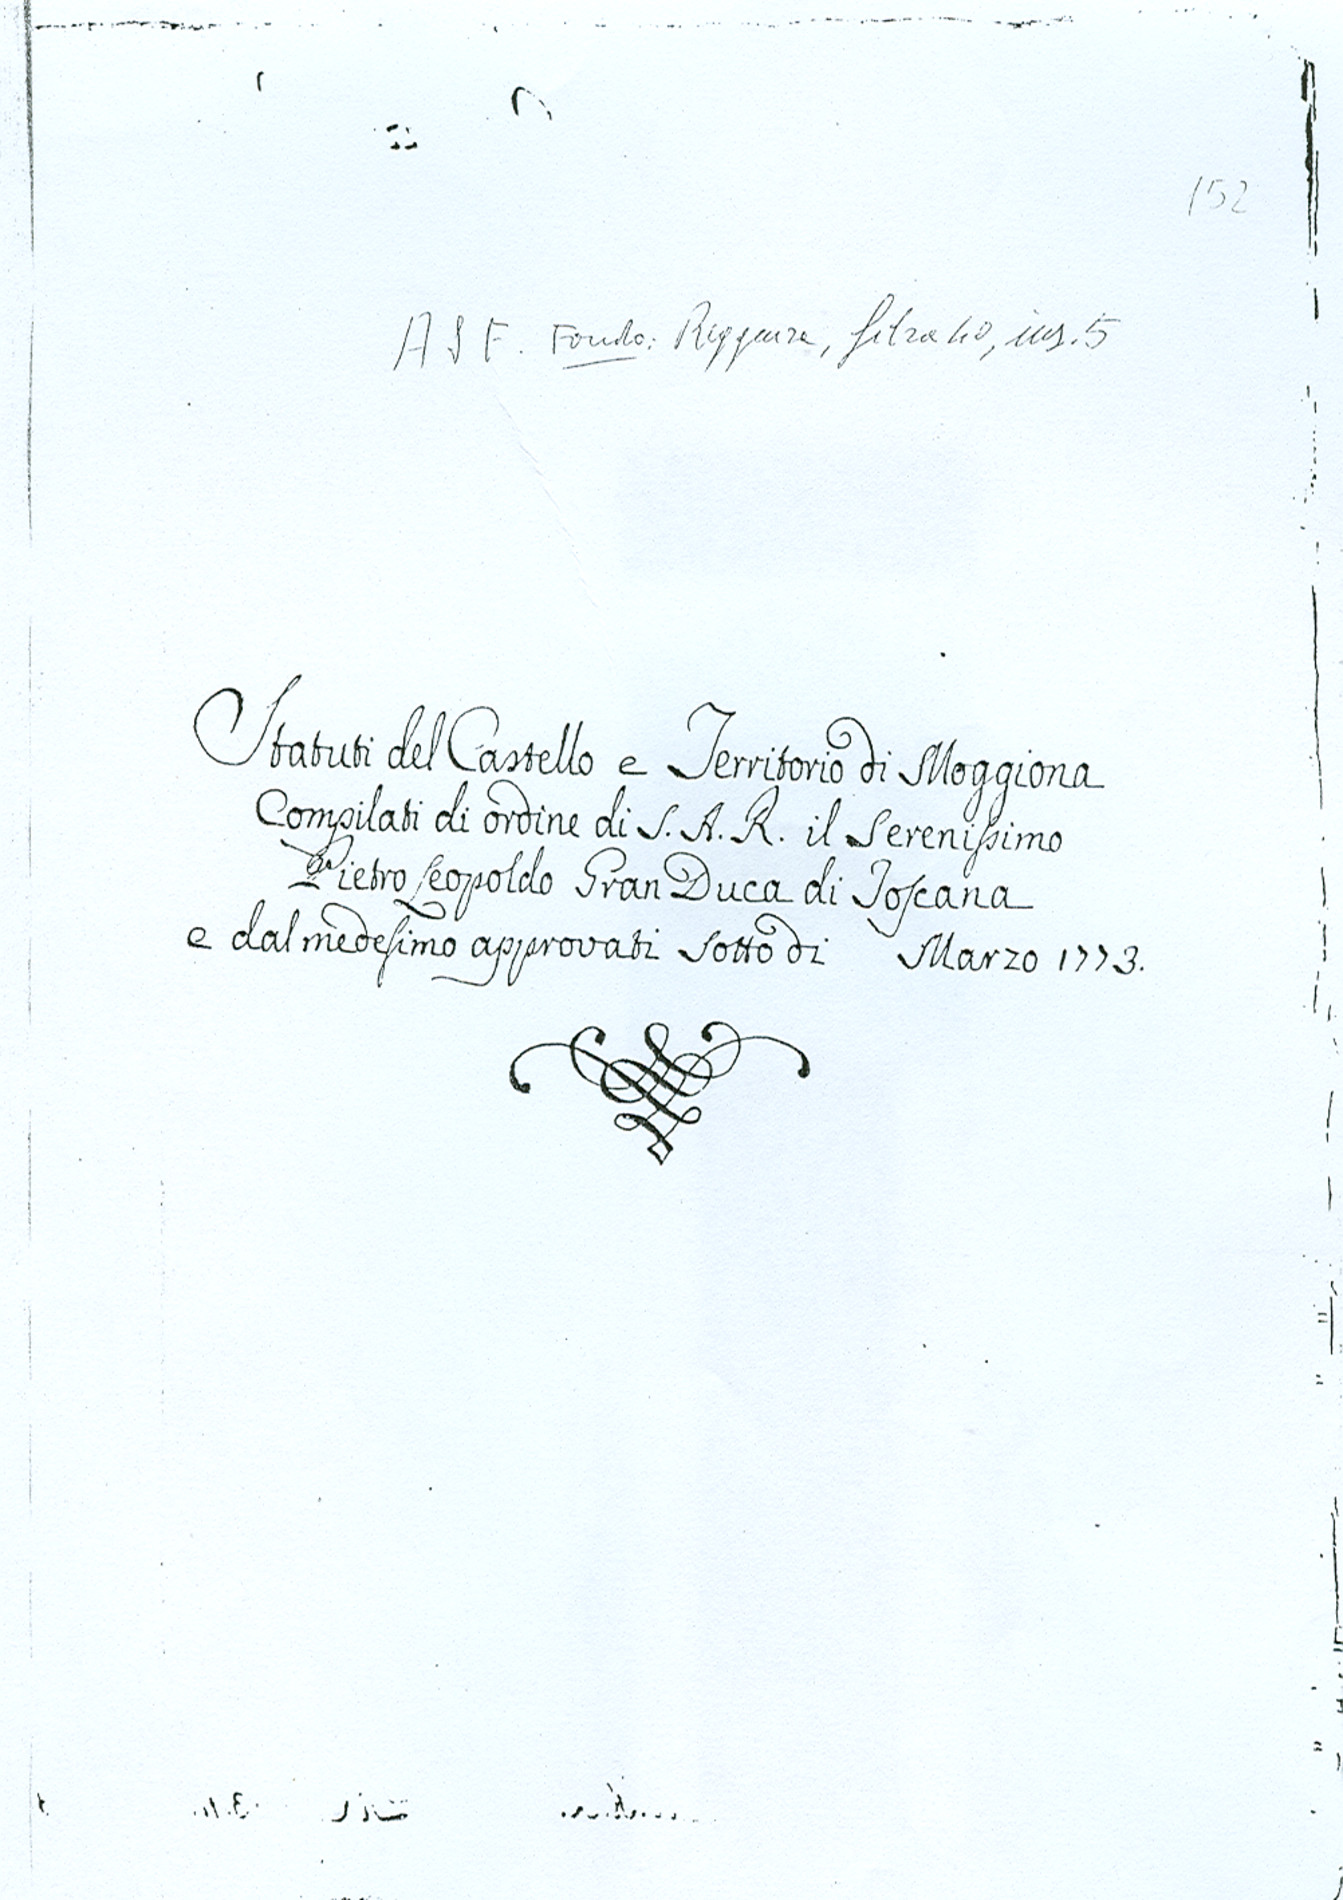 152
ASF. Fondo: Reggenza, filza 40, ins. 5
Statuti del Castello e Territorio di Moggiona
Compilati di ordine di S. A. R. il Serenissimo
Pietro Leopoldo Gran Duca di Toscana
e dal medesimo approvati sotto di Marzo 1773.